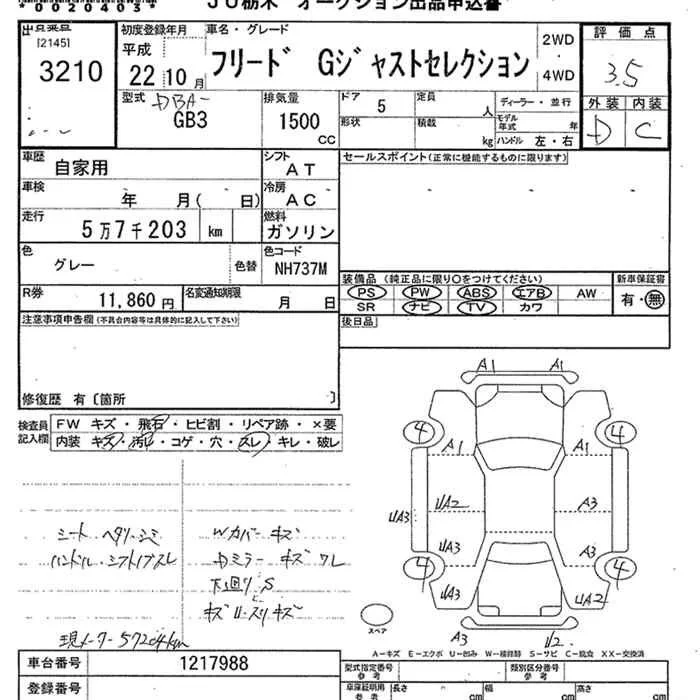 *0020405*
JU栃木 オークション出品申込書
[2145]
3210
初度登録年月
平成
22年10月
車名・グレード
フリード Gジャストセレクション
2WD
・
4WD
評価点
3.5
外装 内装
D C
型式
DBA-
GB3
排気量
1500
cc
ドア
5
定員
人
ディーラー・並行
形状
積載
kg
モデル年式
年
ハンドル 左・右
車歴
自家用
シフト
AT
セールスポイント(正常に機能するものに限ります)
車検
年 月( 日)
冷房
AC
走行
5万7千203 km
燃料
ガソリン
色
グレー
色替
色コード
NH737M
装備品(純正品に限り○をつけてください)
新車保証書
PS PW ABS エアB AW
SR ナビ TV カワ
有・無
R券
11,860円
名変通知期限
月 日
注意事項申告欄(不具合内容等は具体的に記入して下さい)
後日品
修復歴 有〔箇所 〕
検査員記入欄
FW キズ・飛石・ヒビ割・リペア跡・×要
内装 キズ・汚れ・コゲ・穴・スレ・キレ・破レ
シート ヘタリ・シミ
ハンドル・シフトノブスレ
Wカバー キズ
ミラー キズ ワレ
下廻り S
キズ スリキズ
現メーター 57204km
A1 A1
4 4
A1 A1
UA2 A3
UA3
UA3 A3
4 4
UA3 UA2
A3 U2
スペア
A-キズ E-エクボ U-凹み W-補修跡 S-サビ C-腐食 XX-交換済
車台番号
1217988
登録番号
型式指定番号
参考
類別区分番号
参考
車庫証明用
参考
長さ
cm
幅
cm
高さ
cm